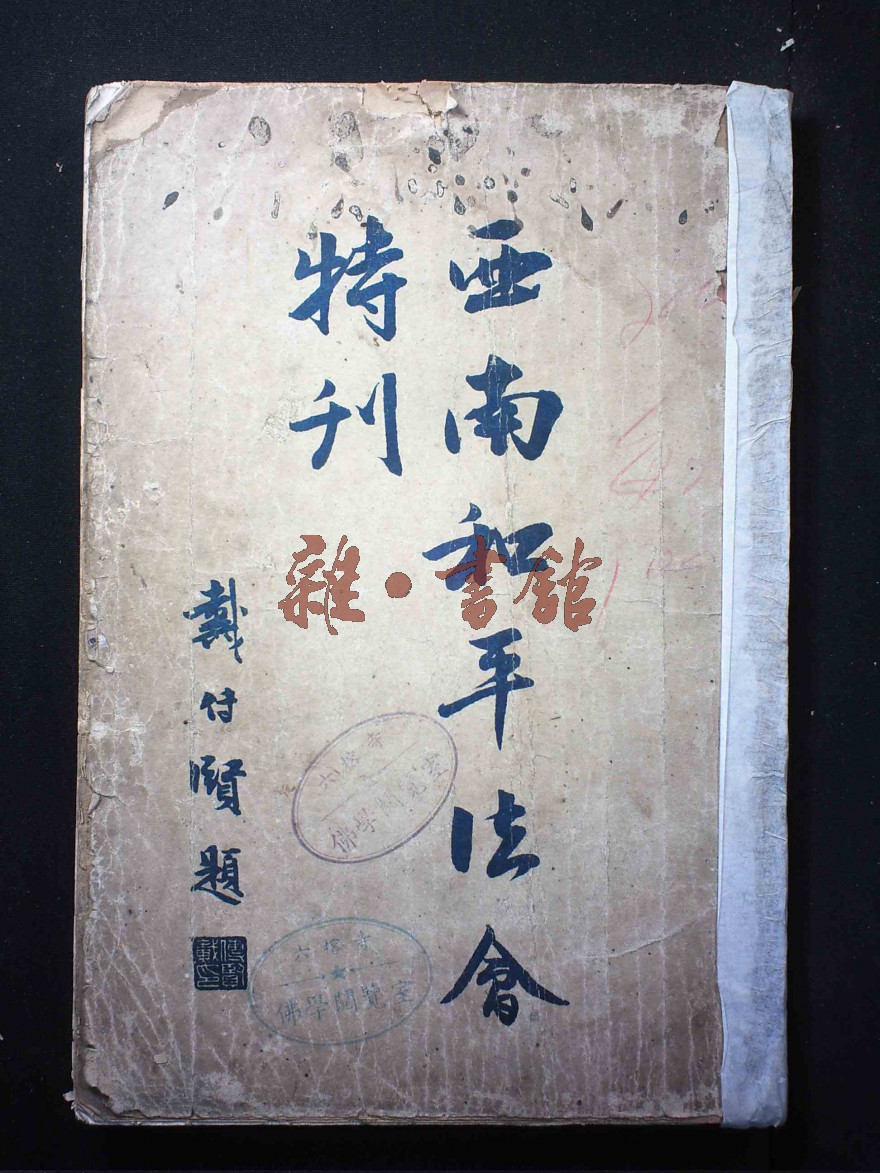 西南和平法會
特刊
戴传賢題
傳賢
戴印
六榕寺
佛學閱覽室
六榕寺
佛學閱覽室
雜·書館